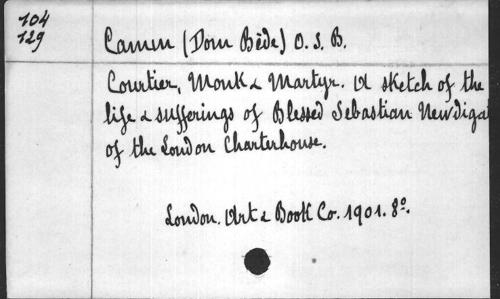 104
129
Camm (Dom Bède) O. S. B.
Courtier, Monk & Martyr. A sketch of the
life & sufferings of Blessed Sebastian Newdigat
of the London Charterhouse.
London. Art & Book Co. 1901. 8º.